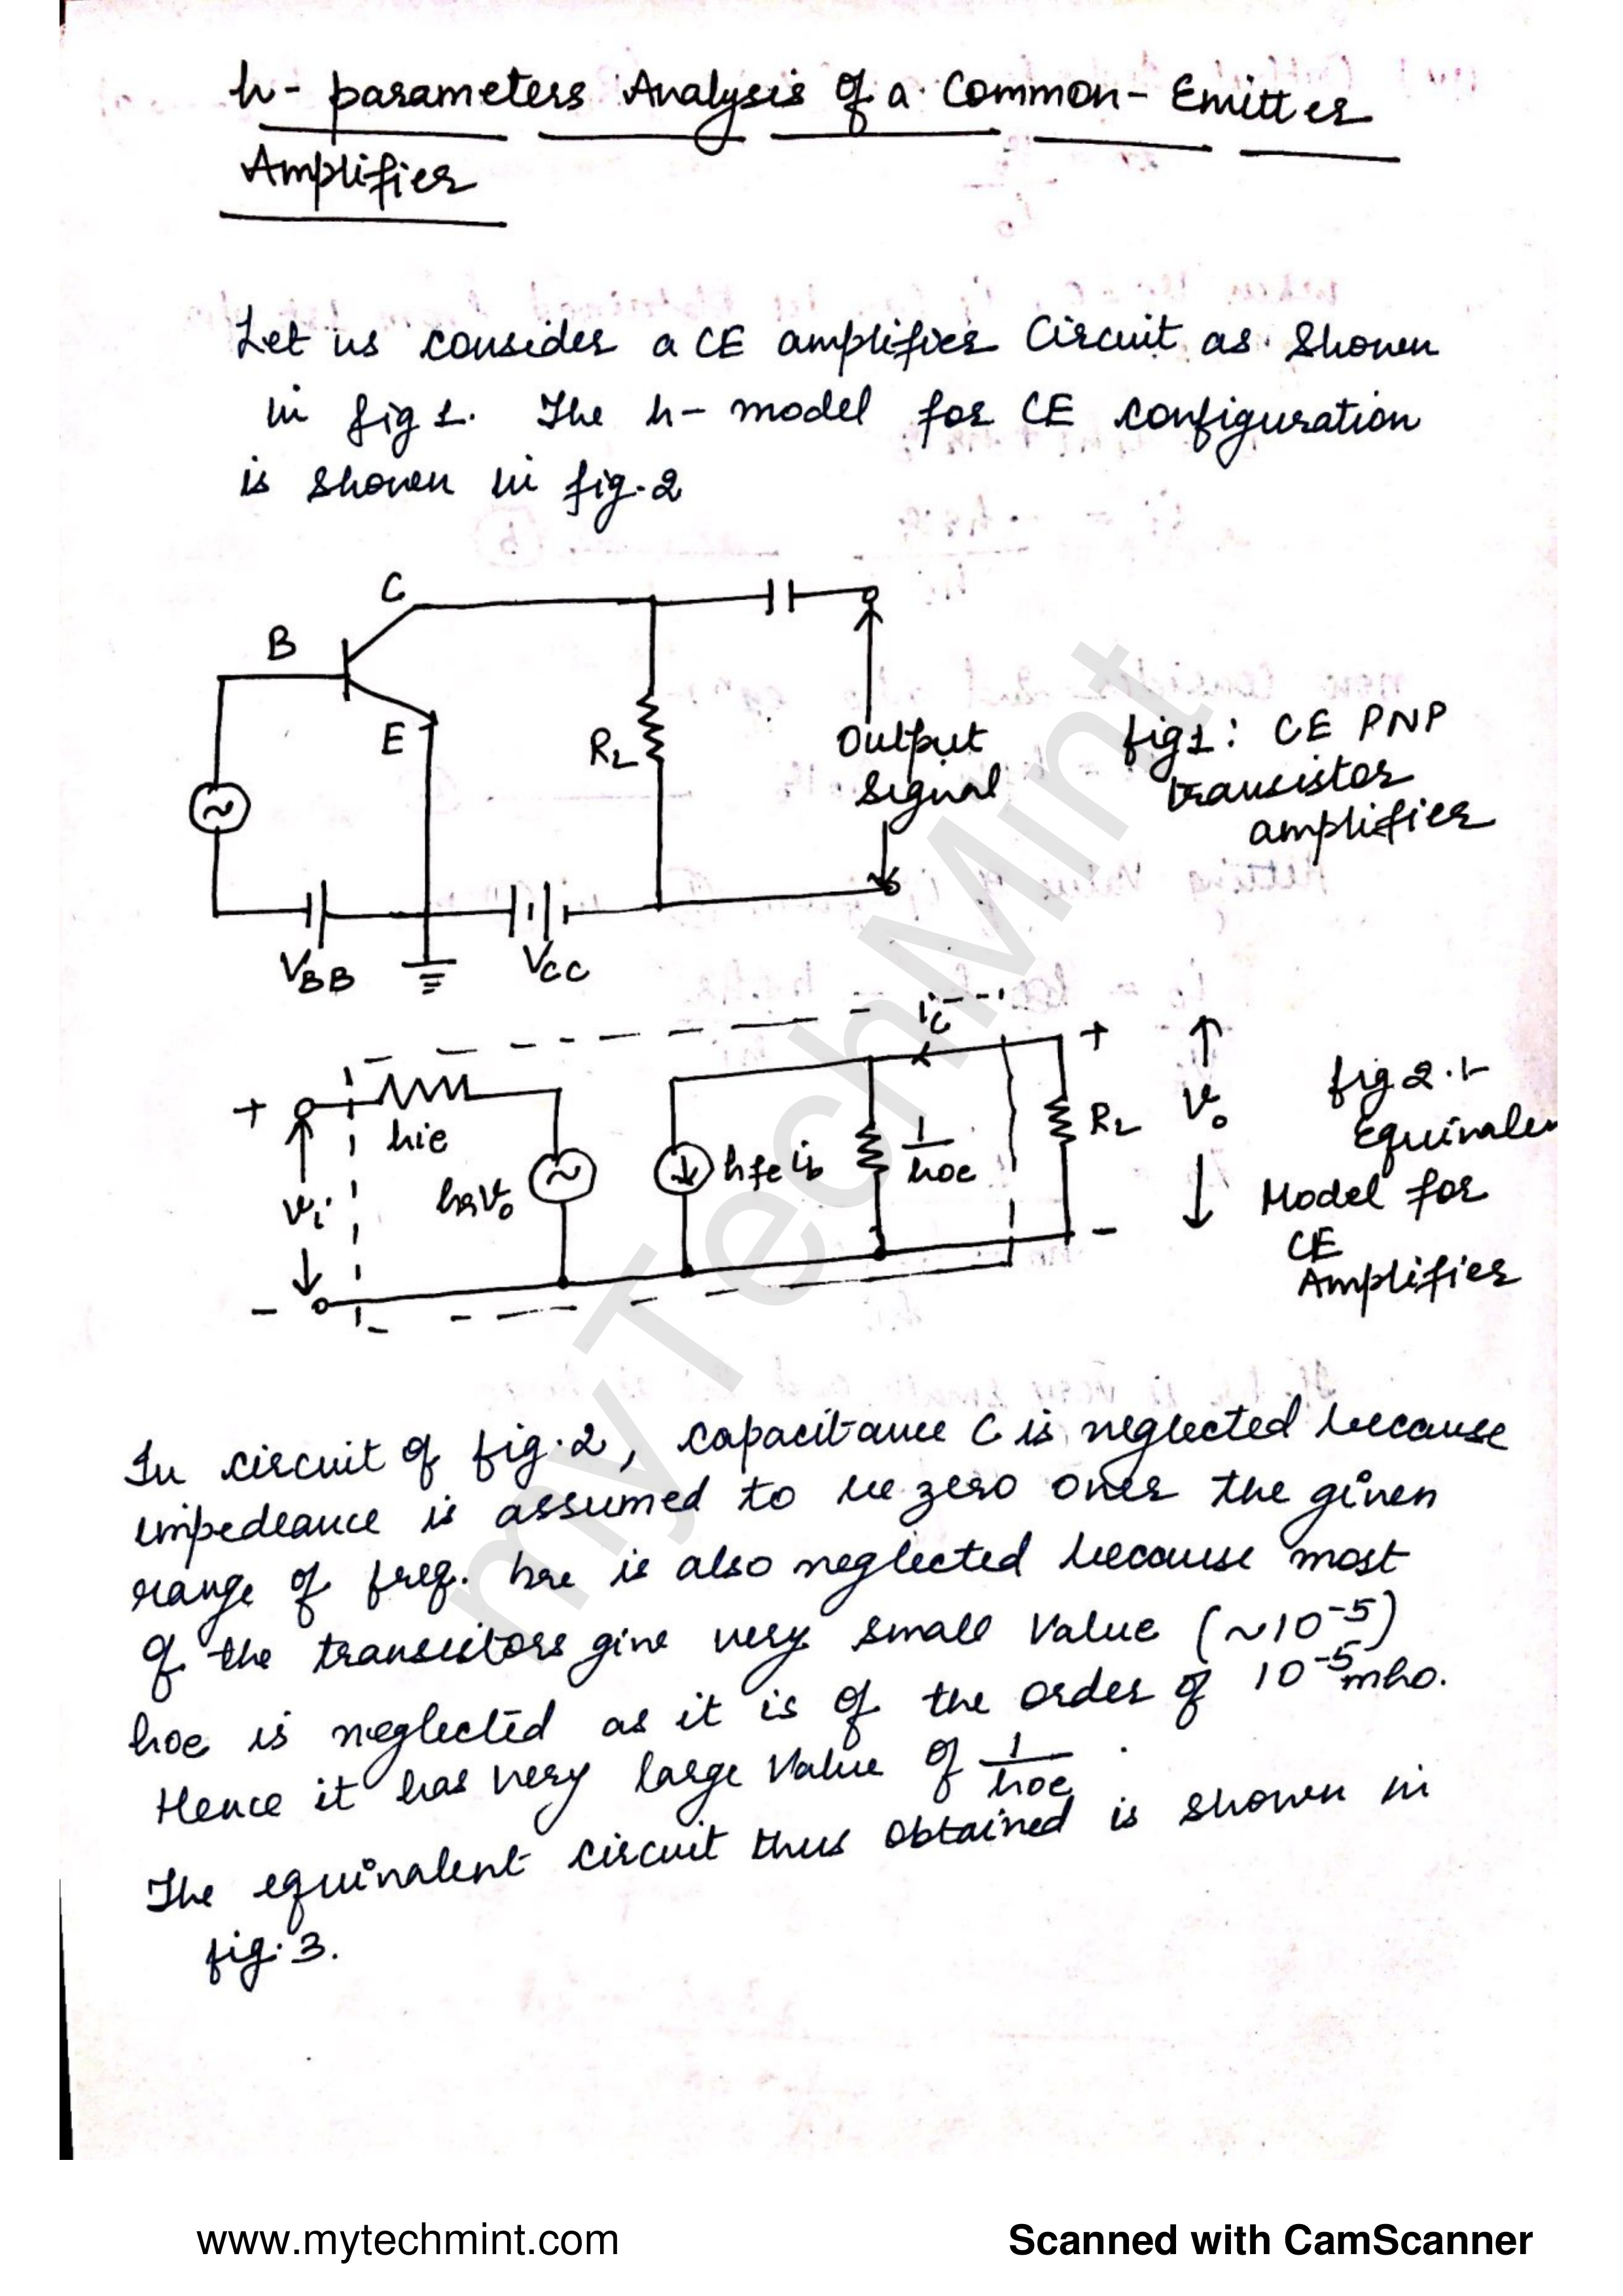 h- parameters Analysis of a Common-Emitter
Amplifier
Let us consider a CE amplifier Circuit as Shown
in fig 1. The h- model for CE configuration
is shown in fig.2
C
B
E
RL
Output
Signal
fig1: CE PNP
transistor
amplifier
VBB
VCC
ic
+
hie
vi
hrv0
hfe ib
1/hoe
RL
+
v0
-
-
fig 2.
Equivalen
Model for
CE
Amplifier
In circuit of fig.2, capacitance C is neglected because
impedeance is assumed to be zero over the given
range of freq. hre is also neglected because most
of the transistors give very small value (~10⁻⁵)
hoe is neglected as it is of the order of 10⁻⁵ mho.
Hence it has very large value of 1/hoe.
The equivalent circuit thus obtained is shown in
fig.3.
myTechMint
www.mytechmint.com
Scanned with CamScanner